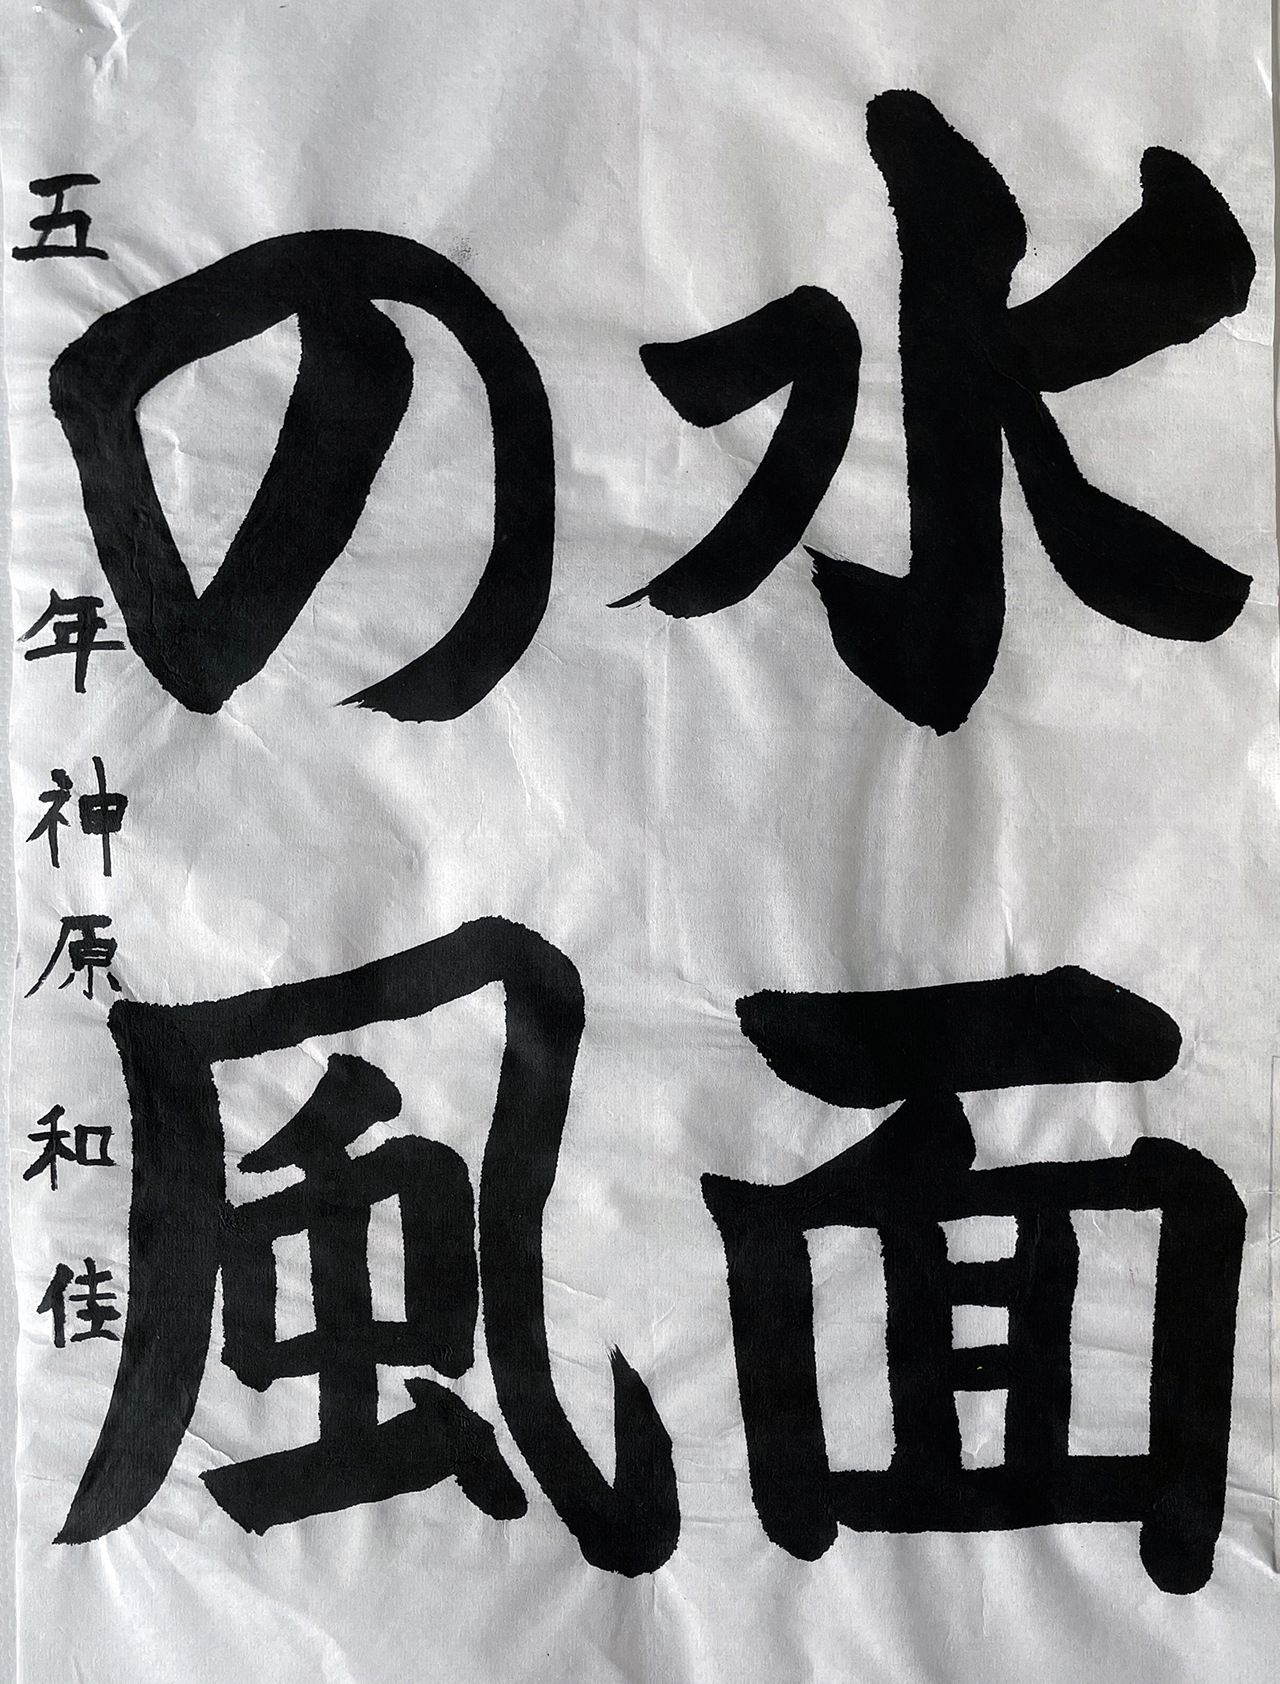 水面
の風
五年 神原和佳